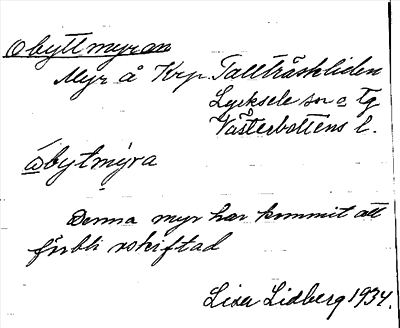 Obyttmyran
Myr å Krp Tallträskliden
Lycksele sn o Tg
Västerbottens l.
åbytmýra
Denna myr har kommit att
förbli oskiftad
Lisa Lidberg 1934.